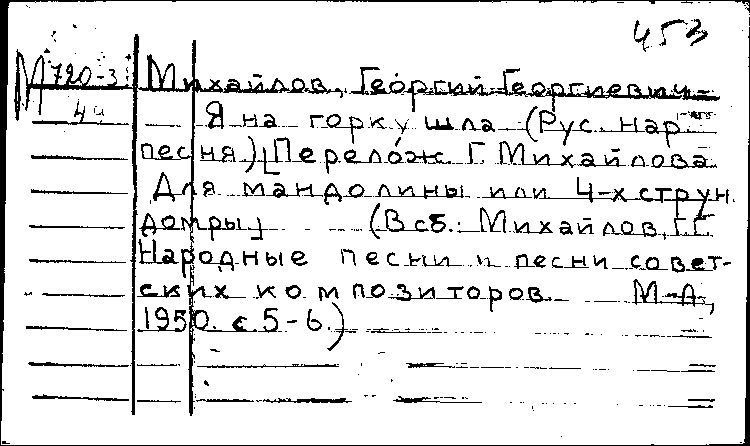 453
М 720-3 Михайлов, Георгий Георгиевич-
44 Я на горку шла (Рус. нар.
песня.) [Перелож. Г. Михайлова
Для мандолины или 4-х струн.
домры] (В сб.: Михайлов, Г.Г.
Народные песни и песни совет-
ских композиторов. М-Л,
1950. с. 5-6.)